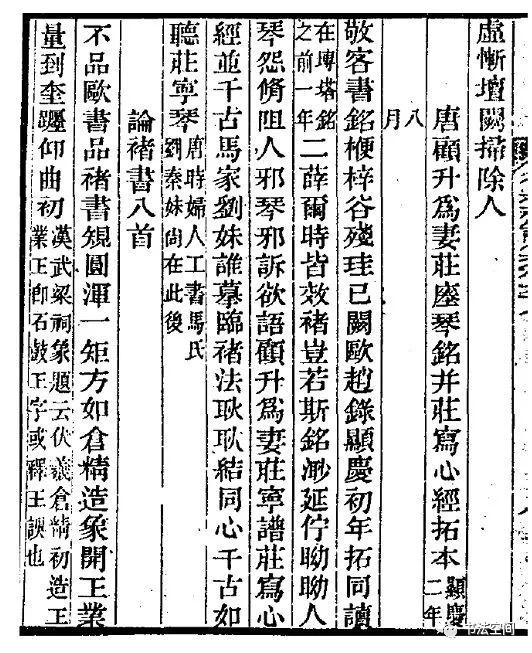 虛慚壇闕掃除人
唐顧升爲妻莊座琴銘并莊寫心經拓本 顯慶二年
八月
敬客書銘楩梓谷殘珪已闕歐趙錄顯慶初年拓同讀
在塼塔銘之前一年 二薛爾時皆效褚豈若斯銘渺延佇眑眑人
琴怨脩阻人邪琴邪訴欲語顧升爲妻莊寧譜莊寫心
經並千古馬家劉妹誰摹臨褚法耿耿結同心千古如
聽莊寧琴 唐時婦人工書馬氏劉秦妹尙在此後
論褚書八首
不品歐書品褚書規圓渾一矩方如倉精造象開工業
量到奎躔仰曲初 漢武梁祠象題云伏羲倉精初造工業工即石鼓工字或釋王誤也
书法空间